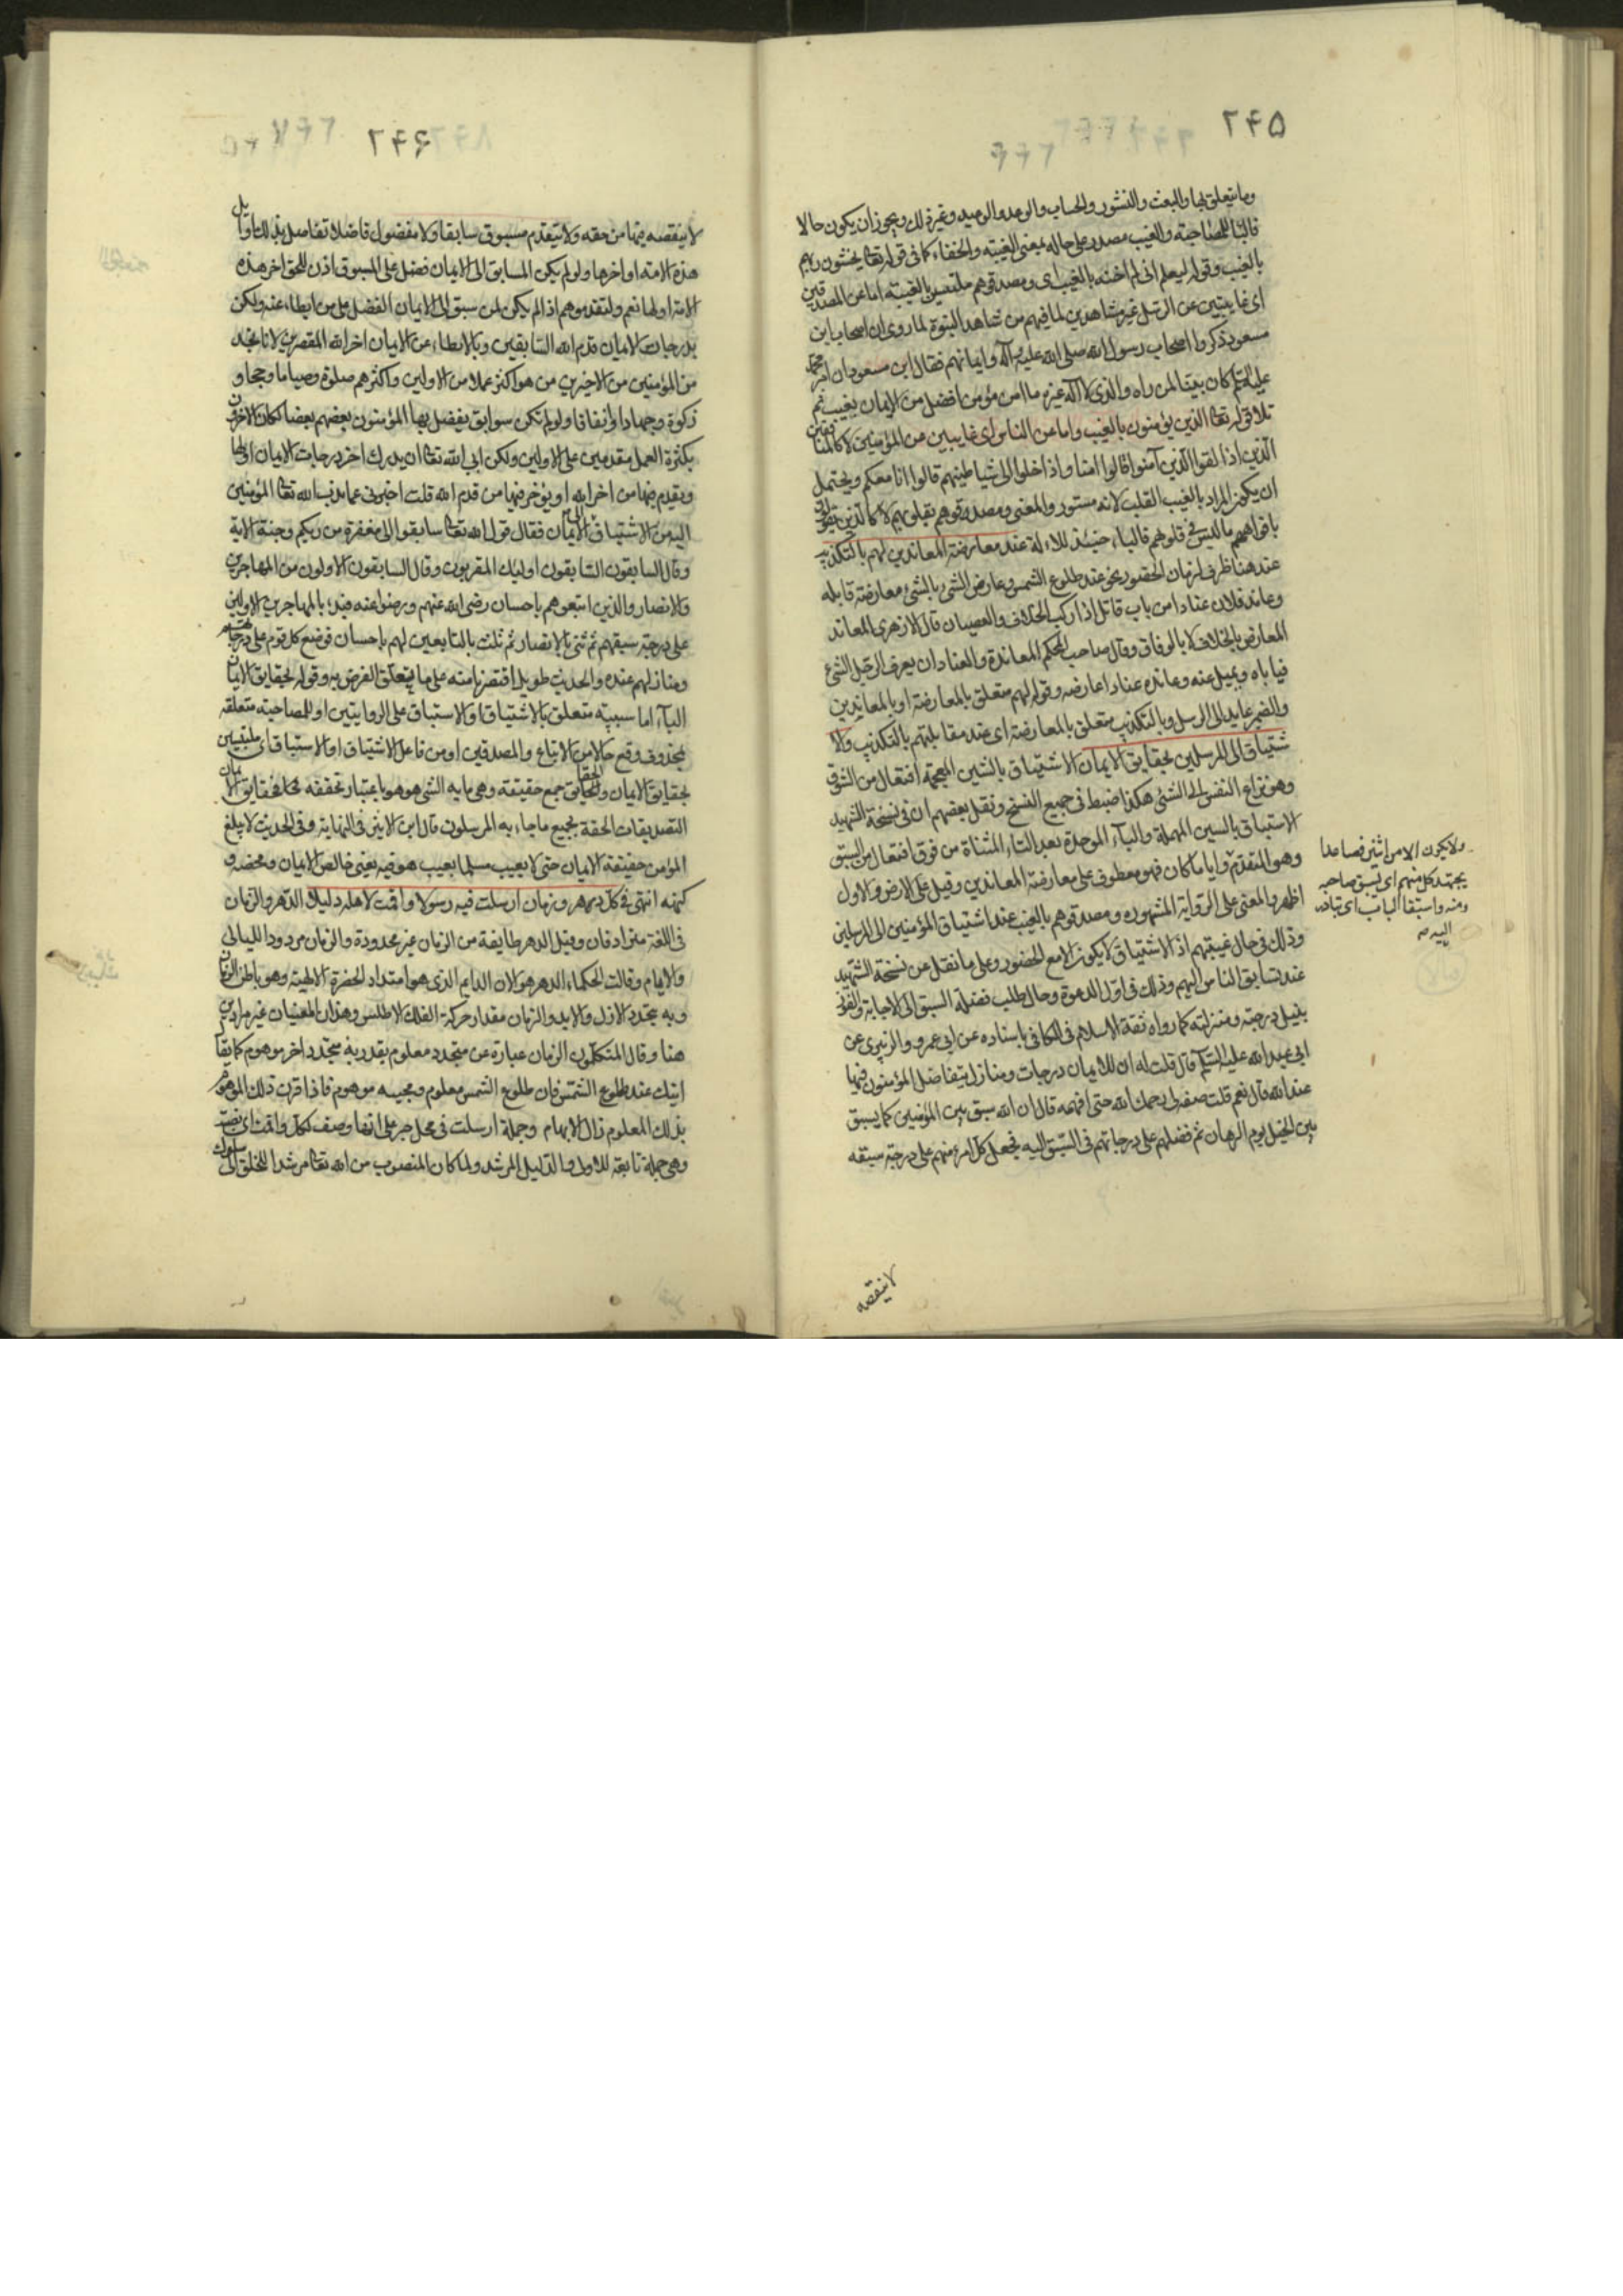 ۲۴۵
وما يتعلق بها والبعث والنشور والحساب والوعد والوعيد وغير ذلك ويجوز ان يكون حالا
فالباء للمصاحبة والغيب مصدر على حاله بمعنى الغيبة والخفاء كما فى قوله تعالى يخشون ربهم
بالغيب وقوله ليعلم انى لم اخنه بالغيب اى ومصدقوهم ملتبسين بالغيبة اما عن المصدقين
اى غايبين عن الرسل غير مشاهدين لما فيهم من شاهد النبوة لما روى ان اصحاب ابن
مسعود ذكروا اصحاب رسول الله صلى الله عليه وآله وايمانهم فقال ابن مسعود ان امر محمد
عليه السلام كان بينا لمن راه والذى لا اله غيره ما امن مؤمن افضل من الايمان بغيب ثم
تلا قوله تعالى الذين يؤمنون بالغيب واما عن الناس اى غايبين عن المؤمنين لا كالمنافقين
الذين اذا لقوا الذين آمنوا قالوا امنا واذا خلوا الى شياطينهم قالوا انا معكم ويحتمل
ان يكون المراد بالغيب القلب لانه مستور والمعنى ومصدقوهم بقلوبهم لا كالذين يقولون
بافواههم ما ليس فى قلوبهم فالباء حينئذ للالة عند معارضة المعاندين لهم بالتكذيب
عند هنا ظرف لزمان الحضور نحو عند طلوع الشمس وعارض الشئ بالشئ معارضة قابله
وعاند فلان عنادا من باب قاتل اذا ركب الخلاف والعصيان قال الازهرى المعاند
المعارض بالخلاف لا بالوفاق وقال صاحب المحكم المعاندة والعناد ان يعرف الرجل الشئ
فيأباه ويميل عنه وعانده عنادا عارضه وقوله لهم متعلق بالمعارضة او بالمعاندين
والضمير عايد الى الرسل وبالتكذيب متعلق بالمعارضة اى عند مقابلتهم بالتكذيب والا
شتياق الى المرسلين بحقايق الايمان الاشتياق بالشين المعجمة افتعال من الشوق
وهو نزاع النفس الى الشئ هكذا ضبط فى جميع النسخ ونقل بعضهم ان فى نسخة الشهيد
الاستباق بالسين المهملة والباء الموحدة بعد التاء المثناة من فوق افتعال من السبق
وهو التقدم وايا ما كان فهو معطوف على معارضة المعاندين وقيل على الارض والاول
اظهر والمعنى على الرواية المشهوره ومصدقوهم بالغيب عند اشتياق المؤمنين الى المرسلين
وذلك فى حال غيبتهم اذ الاشتياق لا يكون الا مع الحضور وعلى ما نقل عن نسخة الشهيد
عند تسابق الناس اليهم وذلك فى اول الدعوة وحال طلب فضلة السبق الى الاجابة والفوز
بنيل درجته ومنزلته كما رواه ثقة الاسلام فى الكافى باسناده عن ابى عمرو الزبيرى عن
ابى عبد الله عليه السلام قال قلت له ان للايمان درجات ومنازل يتفاضل المؤمنون فيها
عند الله قال نعم قلت صفه لى رحمك الله حتى افهمه قال ان الله سبق بين المؤمنين كما يسبق
بين الخيل يوم الرهان ثم فضلهم على درجاتهم فى السبق اليه فجعل كل امرء منهم على درجة سبقه
ولا يكون الا من اثنين فصاعدا
يجتهد كل منهم اى يسبق صاحبه
ومنه واستبقا الباب اى تبادرا
اليه
لا ينقصه
۲۴۶
لا ينقصه فيها من حقه ولا يتقدم مسبوق سابقا ولا مفضول فاضلا تفاضل بذلك اوائل
هذه الامة اواخرها ولو لم يكن للسابق الى الايمان فضل على المسبوق اذن للحق اخر هذه
الامة اولها نعم ولتقدموهم اذا لم يكن لمن سبق الى الايمان الفضل على من ابطاء عنه ولكن
بدرجات الايمان قدم الله السابقين وبالابطاء عن الايمان اخر الله المقصرين لانا نجد
من المؤمنين من الاخرين من هو اكثر عملا من الاولين واكثرهم صلوة وصياما وحجا و
زكوة وجهادا وانفاقا ولو لم تكن سوابق يفضل بها المؤمنون بعضهم بعضا لكان الاخرون
بكثرة العمل مقدمين على الاولين ولكن ابى الله تعالى ان يدرك اخر درجات الايمان اولها
ويقدم فيها من اخر الله او يؤخر فيها من قدم الله قلت اخبرنى عما ندب الله تعالى المؤمنين
اليه من الاشتياق الى الايمان فقال قول الله تعالى سابقوا الى مغفرة من ربكم وجنة الاية
وقال السابقون السابقون اولئك المقربون وقال السابقون الاولون من المهاجرين
والانصار والذين اتبعوهم باحسان رضى الله عنهم ورضوا عنه فبدء بالمهاجرين الاولين
على درجة سبقهم ثم ثنى بالانصار ثم ثلث بالتابعين لهم باحسان فوضع كل قوم على درجاتهم
ومنازلهم عنده والحديث طويل اقتصرنا منه على ما يتعلق الغرض به وقوله بحقايق الايمان
الباء اما سببية متعلق بالاشتياق او الاستباق على الروايتين او للمصاحبة متعلقة
بمحذوف وقع حالا من الاتباع والمصدقين او من فاعل الاشتياق او الاستباق اى ملتبسين
بحقايق الايمان والحقايق جمع حقيقة وهى ما به الشئ هو هو باعتبار تحققه فحقايق الايمان
التصديقات الحقة بجميع ما جاء به المرسلون قال ابن الاثير فى النهاية وفى الحديث لا يبلغ
المؤمن حقيقة الايمان حتى لا يعيب مسلما بعيب هو فيه يعنى خالص الايمان ومحضه و
كنهه انتهى فى كل دهر وزمان ارسلت فيه رسولا واقمت لاهله دليلا الدهر والزمان
فى اللغة مترادفان وقيل الدهر طايفة من الزمان غير محدودة والزمان مرور الليالى
والايام وقالت الحكماء الدهر هو الان الدايم الذى هو امتداد الحضرة الالهية وهو باطن الزمان
وبه يتجدد الازل والابد والزمان مقدار حركة الفلك الاطلس وهذان المعنيان غير مرادين
هنا وقال المتكلمون الزمان عبارة عن متجدد معلوم يقدر به متجدد اخر موهوم كما يقال
اتيك عند طلوع الشمس فان طلوع الشمس معلوم ومجيئه موهوم فاذا قرن ذلك الموهوم
بذلك المعلوم زال الابهام وجملة ارسلت فى محل جر على انها وصف لكل واقمت اى نصبت
وهى جملة تابعة للاولى والدليل المرشد ولما كان المنصوب من الله تعالى مرشدا للخلق الى سلوك